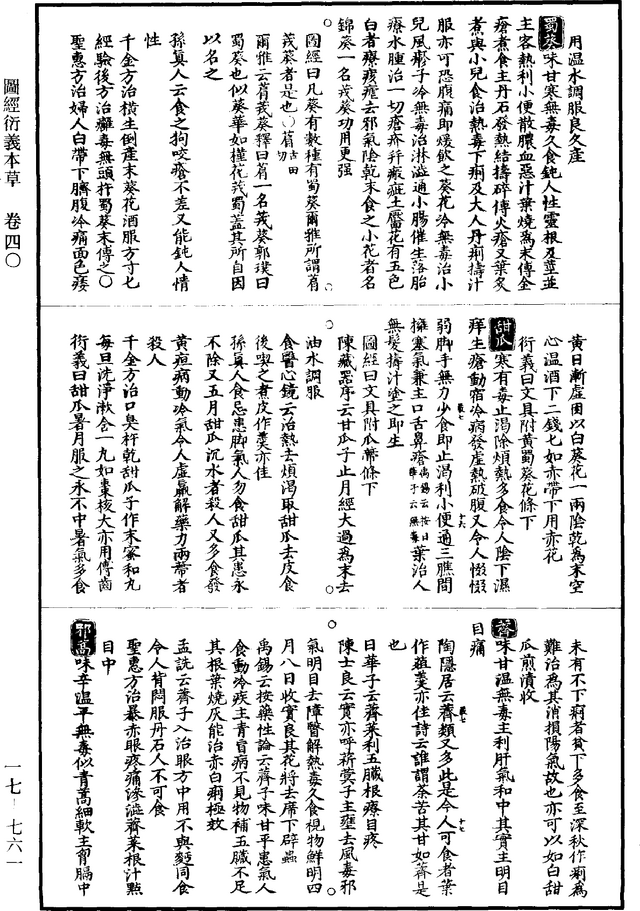 用温水調服良久產
蜀葵味甘寒無毒久食鈍人性靈根及莖並
主客熱利小便散膿血惡汁葉燒為末傅金
瘡煮食主丹石發熱結擣碎傅火瘡又葉炙
煮與小兒食治熱毒下痢及大人丹痢擣汁
服亦可恐腹痛即煖飲之葵花冷無毒治小
兒風疹子冷無毒治淋澁通小腸催生落胎
療水腫治一切瘡疥并瘢疵土靨花有五色
白者療痎瘧去邪氣陰乾末食之小花者名
錦葵一名荍葵功用更强
圖經曰凡葵有數種有蜀葵爾雅所謂菺
荍葵者是也○菺古田切
爾雅云菺荍葵釋曰菺一名荍葵郭璞曰
蜀葵也似葵華如槿花荍蜀蓋其所自因
以名之
孫真人云食之狗咬瘡不差又能鈍人情
性
千金方治橫生倒產末葵花酒服方寸七
經驗後方治癰毒無頭杵蜀葵末傅之○
聖惠方治婦人白帶下臍腹冷痛面色痿
黃日漸虛困以白葵花一兩陰乾為末空
心温酒下二錢七如赤帶下用赤花
衍義曰文具附黃蜀葵花條下
甜瓜寒有毒止渴除煩熱多食令人陰下濕
痒生瘡動宿冷病發虛熱破腹又令人惙惙
弱脚手無力少食即止渴利小便通三膲間
擁塞氣兼主口舌鼻瘡禹錫云按日華子云無毒葉治人
無髮擣汁塗之即生
圖經曰文具附瓜蔕條下
陳藏器序云甘瓜子止月經太過為末去
油水調服
食醫心鏡云治熱去煩渴取甜瓜去皮食
後喫之煮皮作羹亦佳
孫真人食忌患脚氣人勿食甜瓜其患永
不除又五月甜瓜沉水者殺人又多食發
黃疸病動冷氣令人虛羸解藥力兩蔕者
殺人
千金方治口臭杵乾甜瓜子作末蜜和丸
每旦洗淨漱含一丸如棗核大亦用傅齒
衍義曰甜瓜暑月服之永不中暑氣多食
未有不下痢者貧下多食至深秋作痢為
難治為其消損陽氣故也亦可以如白甜
瓜煎漬收
薺味甘温無毒主利肝氣和中其實主明目
目痛
陶隱居云薺類又多此是今人可食者葉
作葅羹亦佳詩云誰謂荼苦其甘如薺是
也
日華子云薺菜利五臟根療目疼
陳士良云實亦呼菥蓂子主壅去風毒邪
氣明目去障翳解熱毒久食視物鮮明四
月八日收實良其花將去席下辟蟲
禹錫云按藥性論云薺子味甘平患氣人
食動冷疾主青冒病不見物補五臟不足
其根葉燒灰能治赤白痢極効
孟詵云薺子入治眼方中用不與麵同食
令人背悶服丹石人不可食
聖惠方治暴赤眼疼痛滲澁薺菜根汁點
目中
邪蒿味辛温平無毒似青蒿細軟主胷膈中
圖經衍義本草 卷四〇
一七–七六一